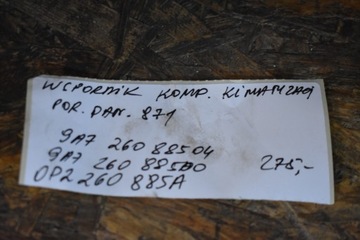 WSPORNIK KOMP. KLIMATYZACJI
POR. PAN. 871
9A7 260 885 04
9A7 260 885 00
0P2 260 885A
275,-